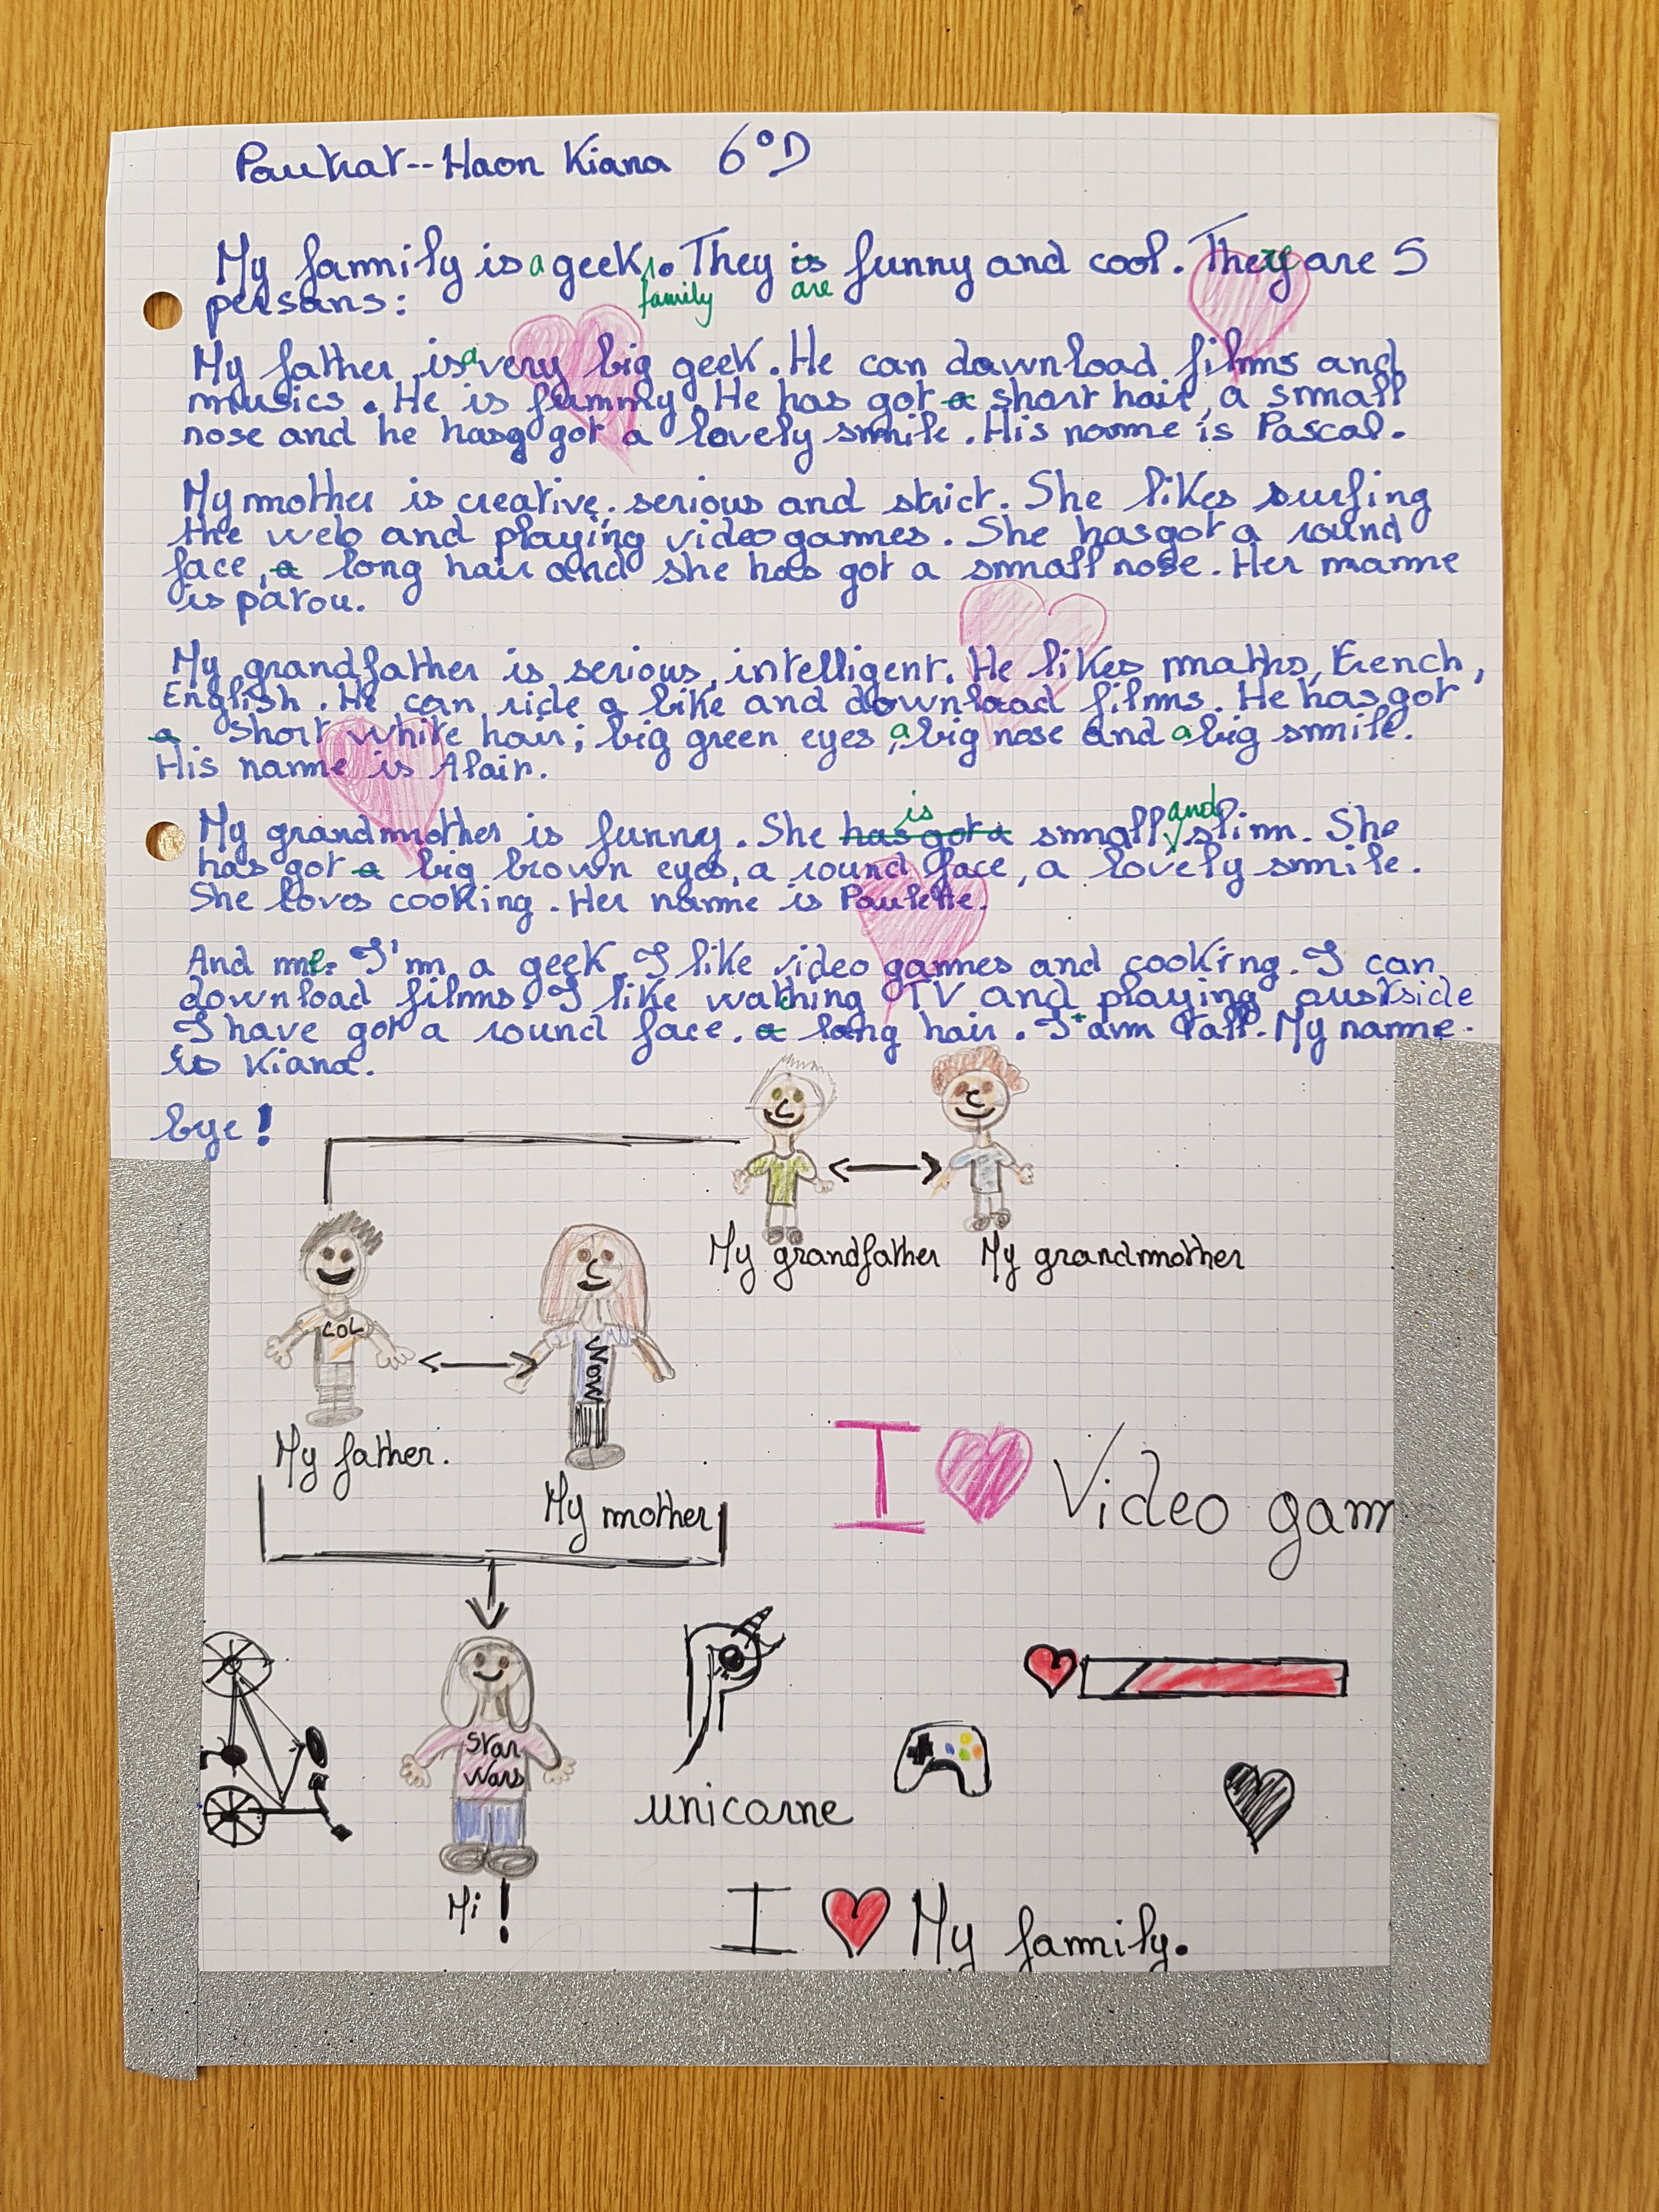 Pautrat--Haon Kiana 6°D
My family is a geek family. They is are funny and cool. There are 5
persons:
My father is a very big geek. He can download films and
musics. He is funny. He has got a short hair, a small
nose and he has got a lovely smile. His name is Pascal.
My mother is creative, serious and strict. She likes surfing
the web and playing video games. She has got a round
face, a long hair and she has got a small nose. Her name
is patou.
My grandfather is serious, intelligent. He likes maths, French,
English. He can ride a bike and download films. He has got
a short white hair; big green eyes, a big nose and a big smile.
His name is Alain.
My grandmother is funny. She has got a is small and slim. She
has got a big brown eyes, a round face, a lovely smile.
She loves cooking. Her name is Paulette.
And me. I'm a geek. I like video games and cooking. I can
download films. I like watching TV and playing outside
I have got a round face. a long hair. I am tall. My name
is Kiana.
bye!
My grandfather My grandmother
LOL
Wow
My father.
My mother
I Video gam
Star
Wars
unicorne
Hi!
I My family.